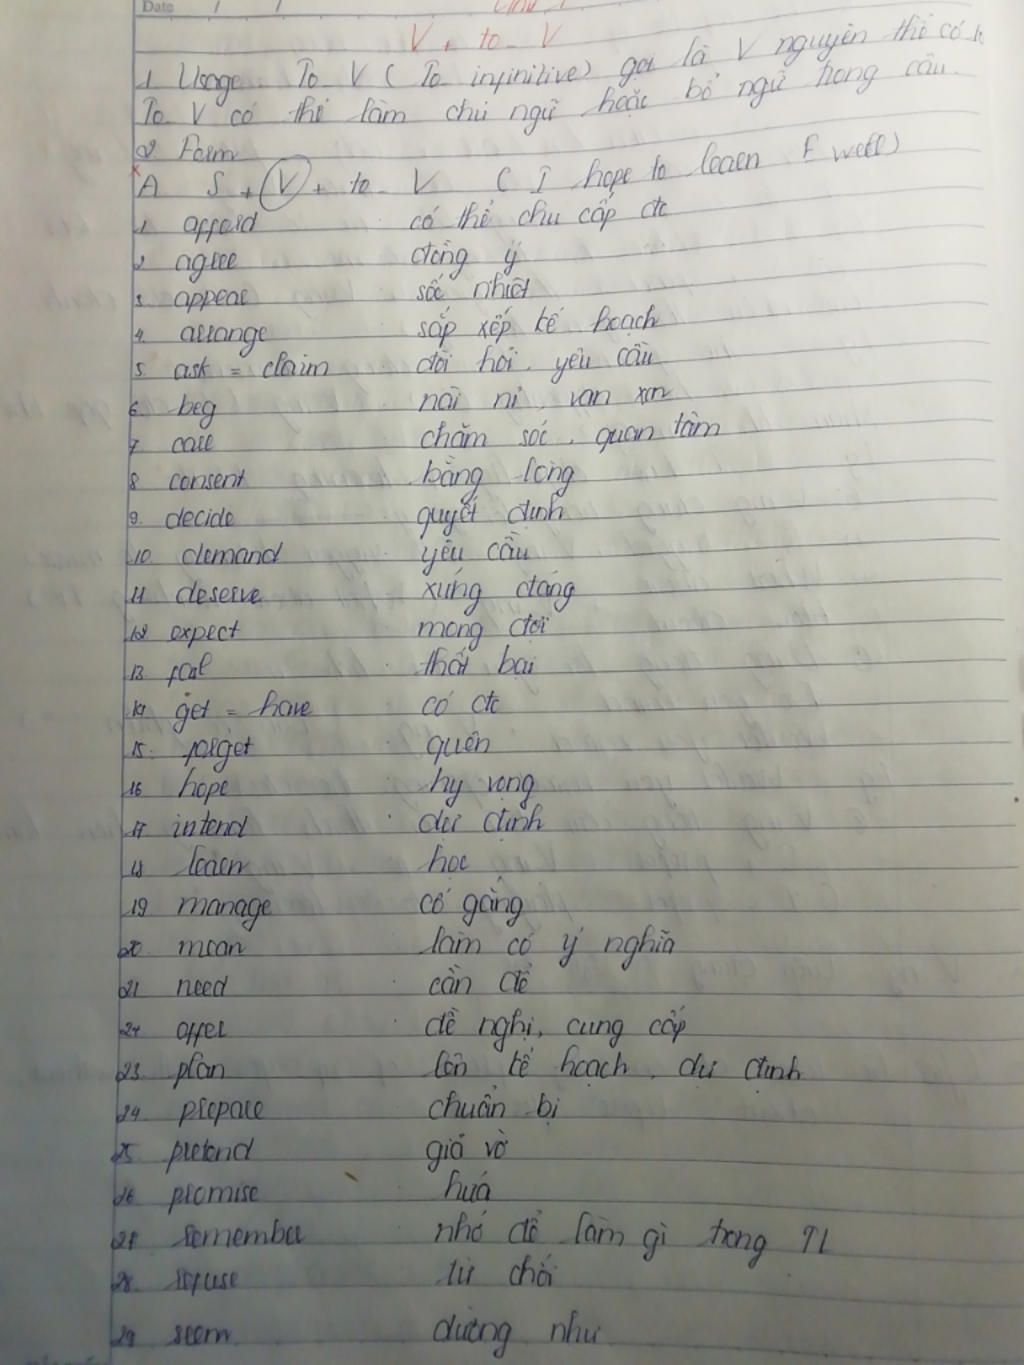 Date / /
V + to - V
1 Usage To V ( To infinitive) gọi là V nguyên thể có
To V có thể làm chủ ngữ hoặc bổ ngữ trong câu.
2 Form
A S + V + to - V ( I hope to learn E well)
1 afford có thể chu cấp đc
2 agree đồng ý
3 appear
4. arrange sắp xếp kế hoạch
5. ask = claim đòi hỏi, yêu cầu
6. beg nài nỉ, van xin
7. care chăm sóc, quan tâm
8 consent bằng lòng
9. decide quyết định
10. demand yêu cầu
11 deserve xứng đáng
12 expect mong đợi
13 fail thất bại
14 get = have có đc
15. forget quên
16 hope hy vọng
17 intend dự định
18 learn học
19 manage cố gắng
20 mean làm có ý nghĩa
21 need cần để
22 offer đề nghị, cung cấp
23. plan lên kế hoạch, dự định
24 prepare chuẩn bị
25 pretend giả vờ
26 promise hứa
27 remember nhớ để làm gì trong TL
28 refuse từ chối
29 seem dường như